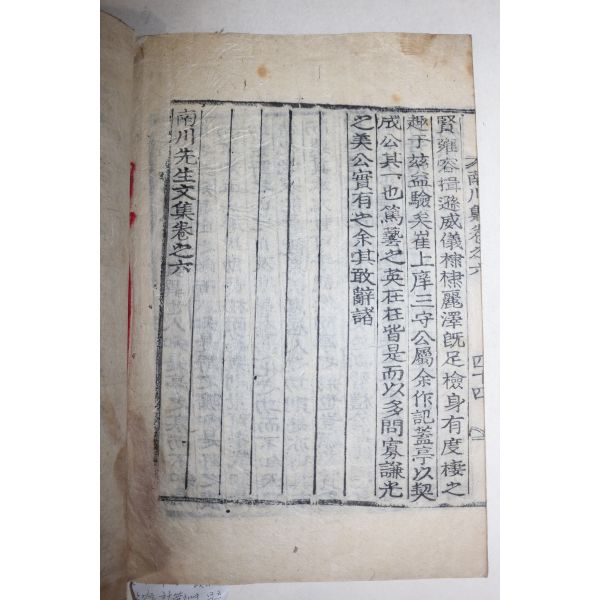 南川集卷之六　四十四
賢雍容揖遜威儀棣棣麗澤旣足檢身有度棲之
趣于玆益驗矣崔上庠三守公屬余作記蓋亭以契
成公其一也篤藝之英在在皆是而以多問寡謙光
之美公實有之余其敢辭諸
南川先生文集卷之六